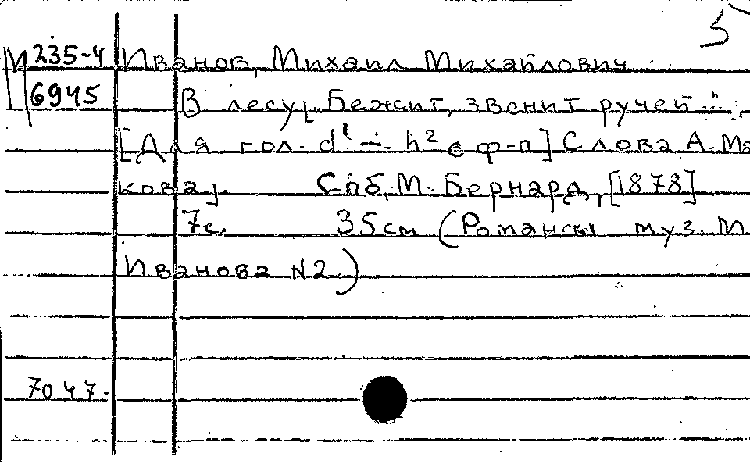 5
И 235-4 Иванов, Михаил Михайлович
6945 В лесу [„Бежит, звенит ручей..."
[Для гол. d¹ — h² с ф-п] Слова А. Май
кова]. Спб, М. Бернард, [1878]
7с. 35см (Романсы муз. М.
Иванова №2.)
7047.